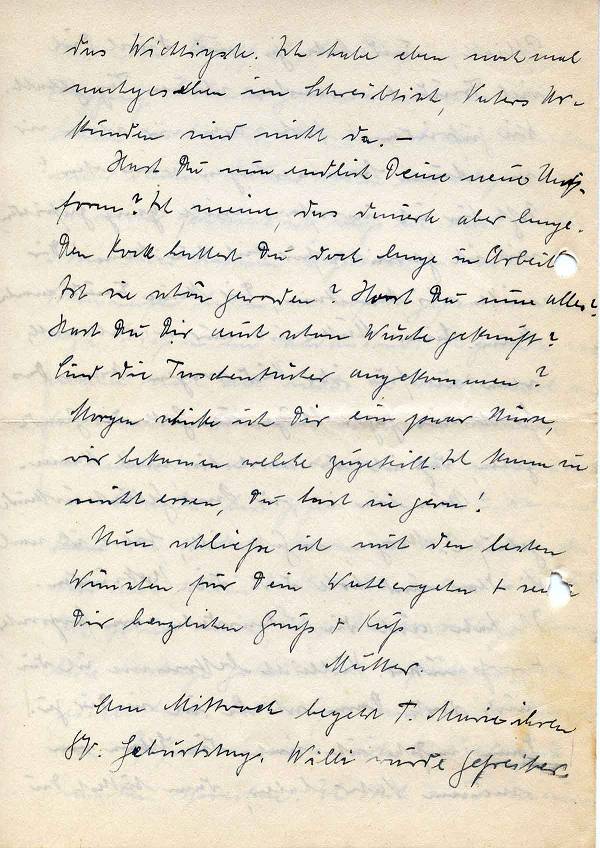 das Wichtigste. Ich habe eben noch mal
nachgesehen im Schreibtisch, Vaters Ur-
kunden sind nicht da. –
Hast Du nun endlich Deine neue Uni-
form? Ich meine, das dauerte aber lange.
Den Rock hattest Du doch lange in Arbeit
Ist sie schön geworden? Hast Du nun alles?
Hast Du Dir auch schon Wäsche gekauft?
Sind die Taschentücher angekommen?
Morgen schicke ich Dir ein paar Nüsse,
wir bekamen welche zugeteilt. Ich kann sie
nicht essen, Du hast sie gern!
Nun schließe ich mit den besten
Wünschen für Dein Wohlergehen +
Dir herzlichen Gruß + Kuß
Mutter.
Am Mittwoch begeht T. Marie ihren
Geburtstag. Willi wurde Gefreiter.